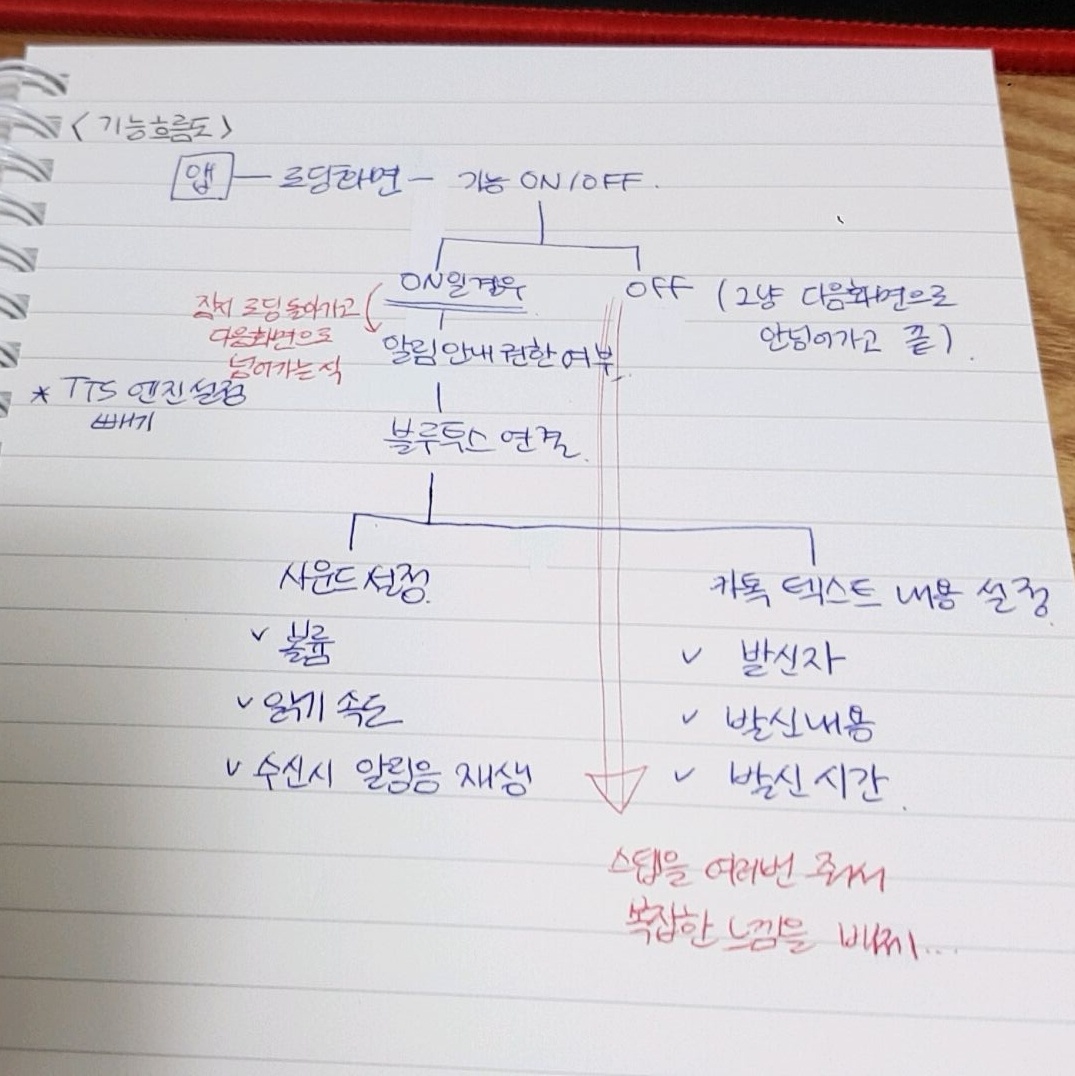 <기능흐름도>
앱 — 로딩화면 — 기능 ON/OFF.
ON일경우
OFF (그냥 다음화면으로
안넘어가고 끝).
잠시 로딩돌아가고
다음화면으로
넘어가는식
알림안내 권한여부.
* TTS 엔진설정
빼기
블루투스 연결.
사운드설정.
✓ 볼륨
✓ 읽기 속도
✓ 수신시 알림음 재생
카톡 텍스트 내용 설정.
✓ 발신자
✓ 발신내용
✓ 발신시간.
스텝을 여러번 줘서
복잡한 느낌을 배제...